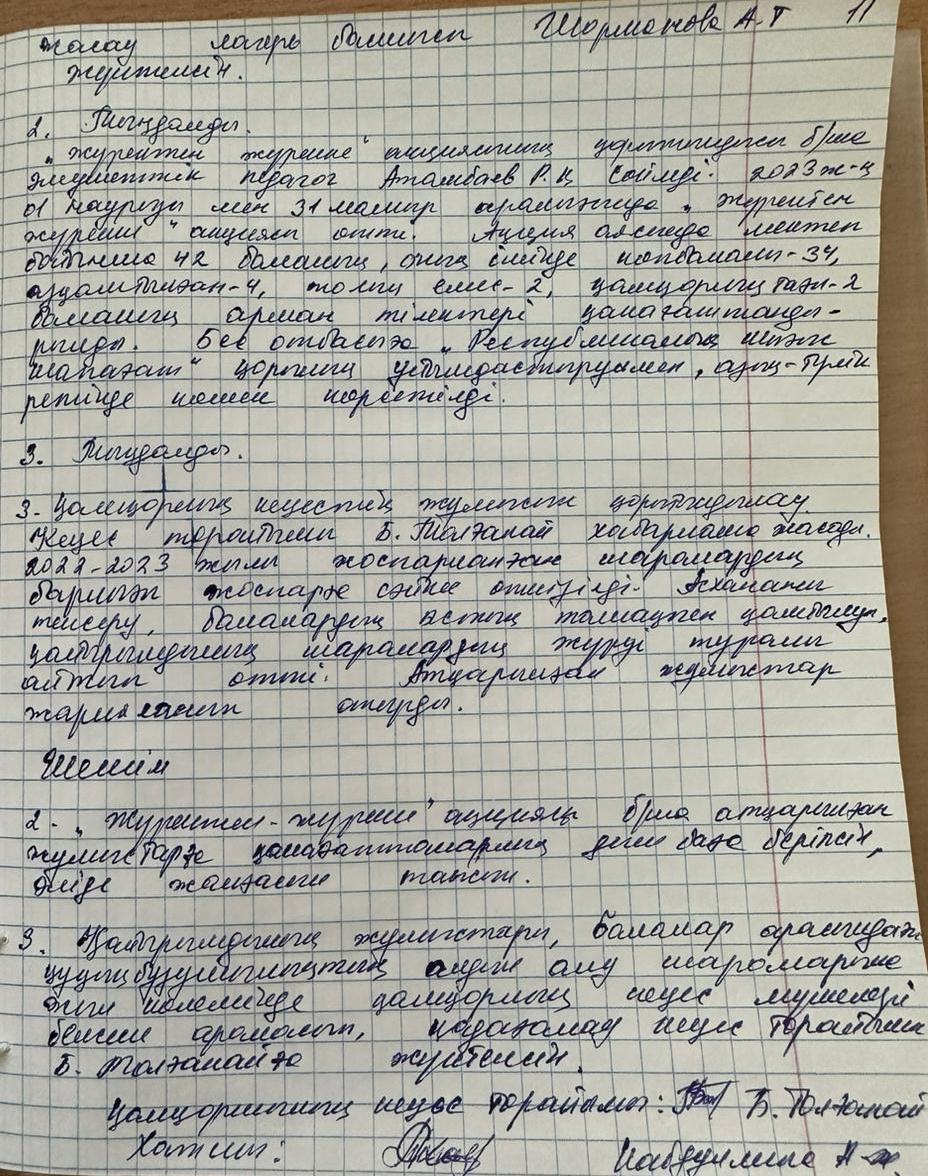 жасау лагерь бөлімген Шорманова А.Т 11
жүктелсін.
2. Тыңдалды.
„Жүректен жүрекке" акциясының қорытындысы б/ша
әлеуметтік педагог Атамбаев Р.Қ сөйледі. 2023ж-ң
01 наурызы мен 31 мамыр аралығында „жүректен
жүрекке" акциясы өтті. Акция аясында мектеп
бойынша 42 баланың, оның ішінде көпбалалы-34,
азқамтылған-4, толық емес-2, қамқорлықтағы-2
баланың арман тілектері қанағаттанды-
рылды. Бес отбасыға „Республикалық
шапағат" қорының ұйымдастыруымен, азық-түлік
ретінде көмек көрсетілді.
3. Тыңдалды.
3. Қамқорлық кеңестің жұмысын қорытындылау.
Кеңес төрайымы Б. Толғанай хабарлама жасады.
2022-2023 жылы жоспарланған шаралардың
барлығы жоспарға сәйкес өткізілді. Асхананы
тексеру, балалардың ыстық тамақпен қамтылуы,
қайырымдылық шаралардың жүруі туралы
айтып өтті. Атқарылған жұмыстар
жарияланып отырды.
Шешім
2. „Жүректен-жүрекке" акциясы б/ша атқарылған
жұмыстарға қанағаттанарлық деген баға берілсін,
әрі жалғасын тапсын.
3. Қайырымдылық жұмыстары, балалар арасындағы
құқық бұзушылықтың алдын алу шараларына
оқын көлемінде қамқорлық кеңес мүшелері
белсене араласып, қадағалау кеңес төрайымы
Б. Толғанайға жүктелсін.
Қамқорлық кеңес төрайымы: Б. Толғанай
Хатшы: Кабдулина А